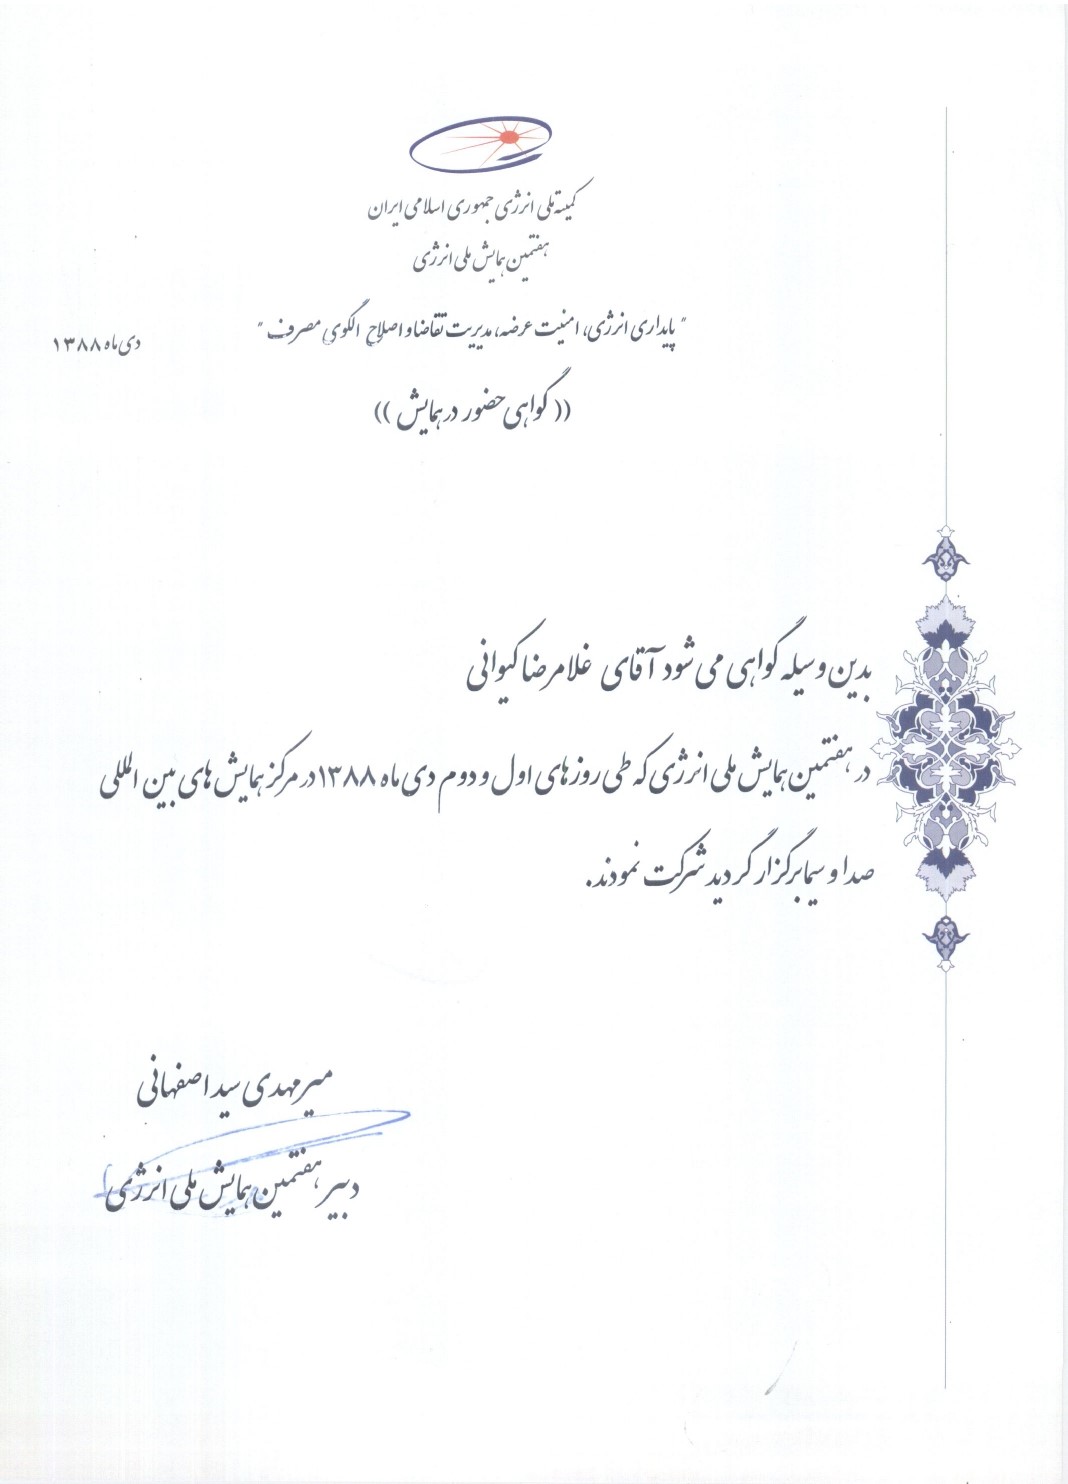 کمیته ملی انرژی جمهوری اسلامی ایران
هفتمین همایش ملی انرژی
" پایداری انرژی، امنیت عرضه، مدیریت تقاضا و اصلاح الگوی مصرف "
دی ماه ۱۳۸۸
(( گواهی حضور در همایش ))
بدین وسیله گواهی می شود آقای غلامرضا کیوانی
در هفتمین همایش ملی انرژی که طی روزهای اول و دوم دی ماه ۱۳۸۸ در مرکز همایش های بین المللی
صدا و سیما برگزار گردید شرکت نمودند.
میرمهدی سید اصفهانی
دبیر هفتمین همایش ملی انرژی